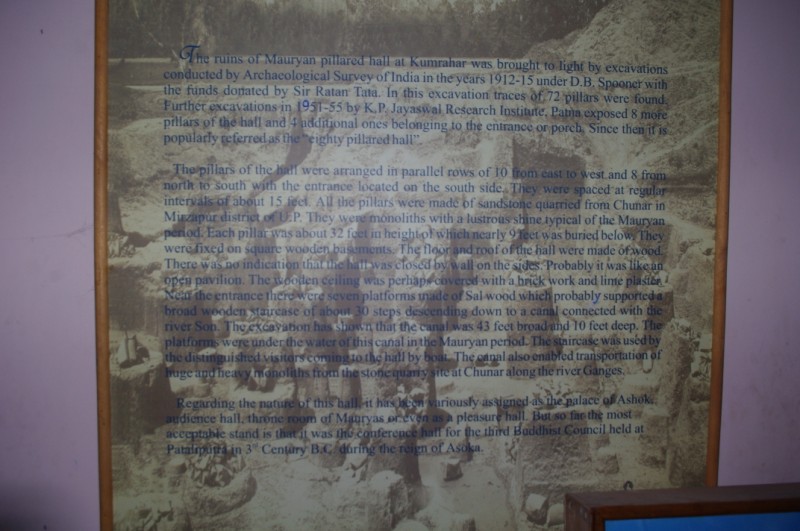 The ruins of Mauryan pillared hall at Kumrahar was brought to light by excavations
conducted by Archaeological Survey of India in the years 1912-15 under D.B. Spooner with
the funds donated by Sir Ratan Tata. In this excavation traces of 72 pillars were found.
Further excavations in 1951-55 by K.P. Jayaswal Research Institute, Patna exposed 8 more
pillars of the hall and 4 additional ones belonging to the entrance or porch. Since then it is
popularly referred as the "eighty pillared hall".
The pillars of the hall were arranged in parallel rows of 10 from east to west and 8 from
north to south with the entrance located on the south side. They were spaced at regular
intervals of about 15 feet. All the pillars were made of sandstone quarried from Chunar in
Mirzapur district of U.P. They were monoliths with a lustrous shine typical of the Mauryan
period. Each pillar was about 32 feet in height of which nearly 9 feet was buried below. They
were fixed on square wooden basements. The floor and roof of the hall were made of wood.
There was no indication that the hall was closed by wall on the sides. Probably it was like an
open pavilion. The wooden ceiling was perhaps covered with a brick work and lime plaster.
Near the entrance there were seven platforms made of Sal wood which probably supported a
broad wooden staircase of about 30 steps descending down to a canal connected with the
river Son. The excavation has shown that the canal was 43 feet broad and 10 feet deep. The
platforms were under the water of this canal in the Mauryan period. The staircase was used by
the distinguished visitors coming to the hall by boat. The canal also enabled transportation of
huge and heavy monoliths from the stone quarry site at Chunar along the river Ganges.
Regarding the nature of this hall, it has been variously assigned as the palace of Ashok,
audience hall, throne room of Mauryas or even as a pleasure hall. But so far the most
acceptable stand is that it was the conference hall for the third Buddhist Council held at
Pataliputra in 3rd Century B.C. during the reign of Asoka.